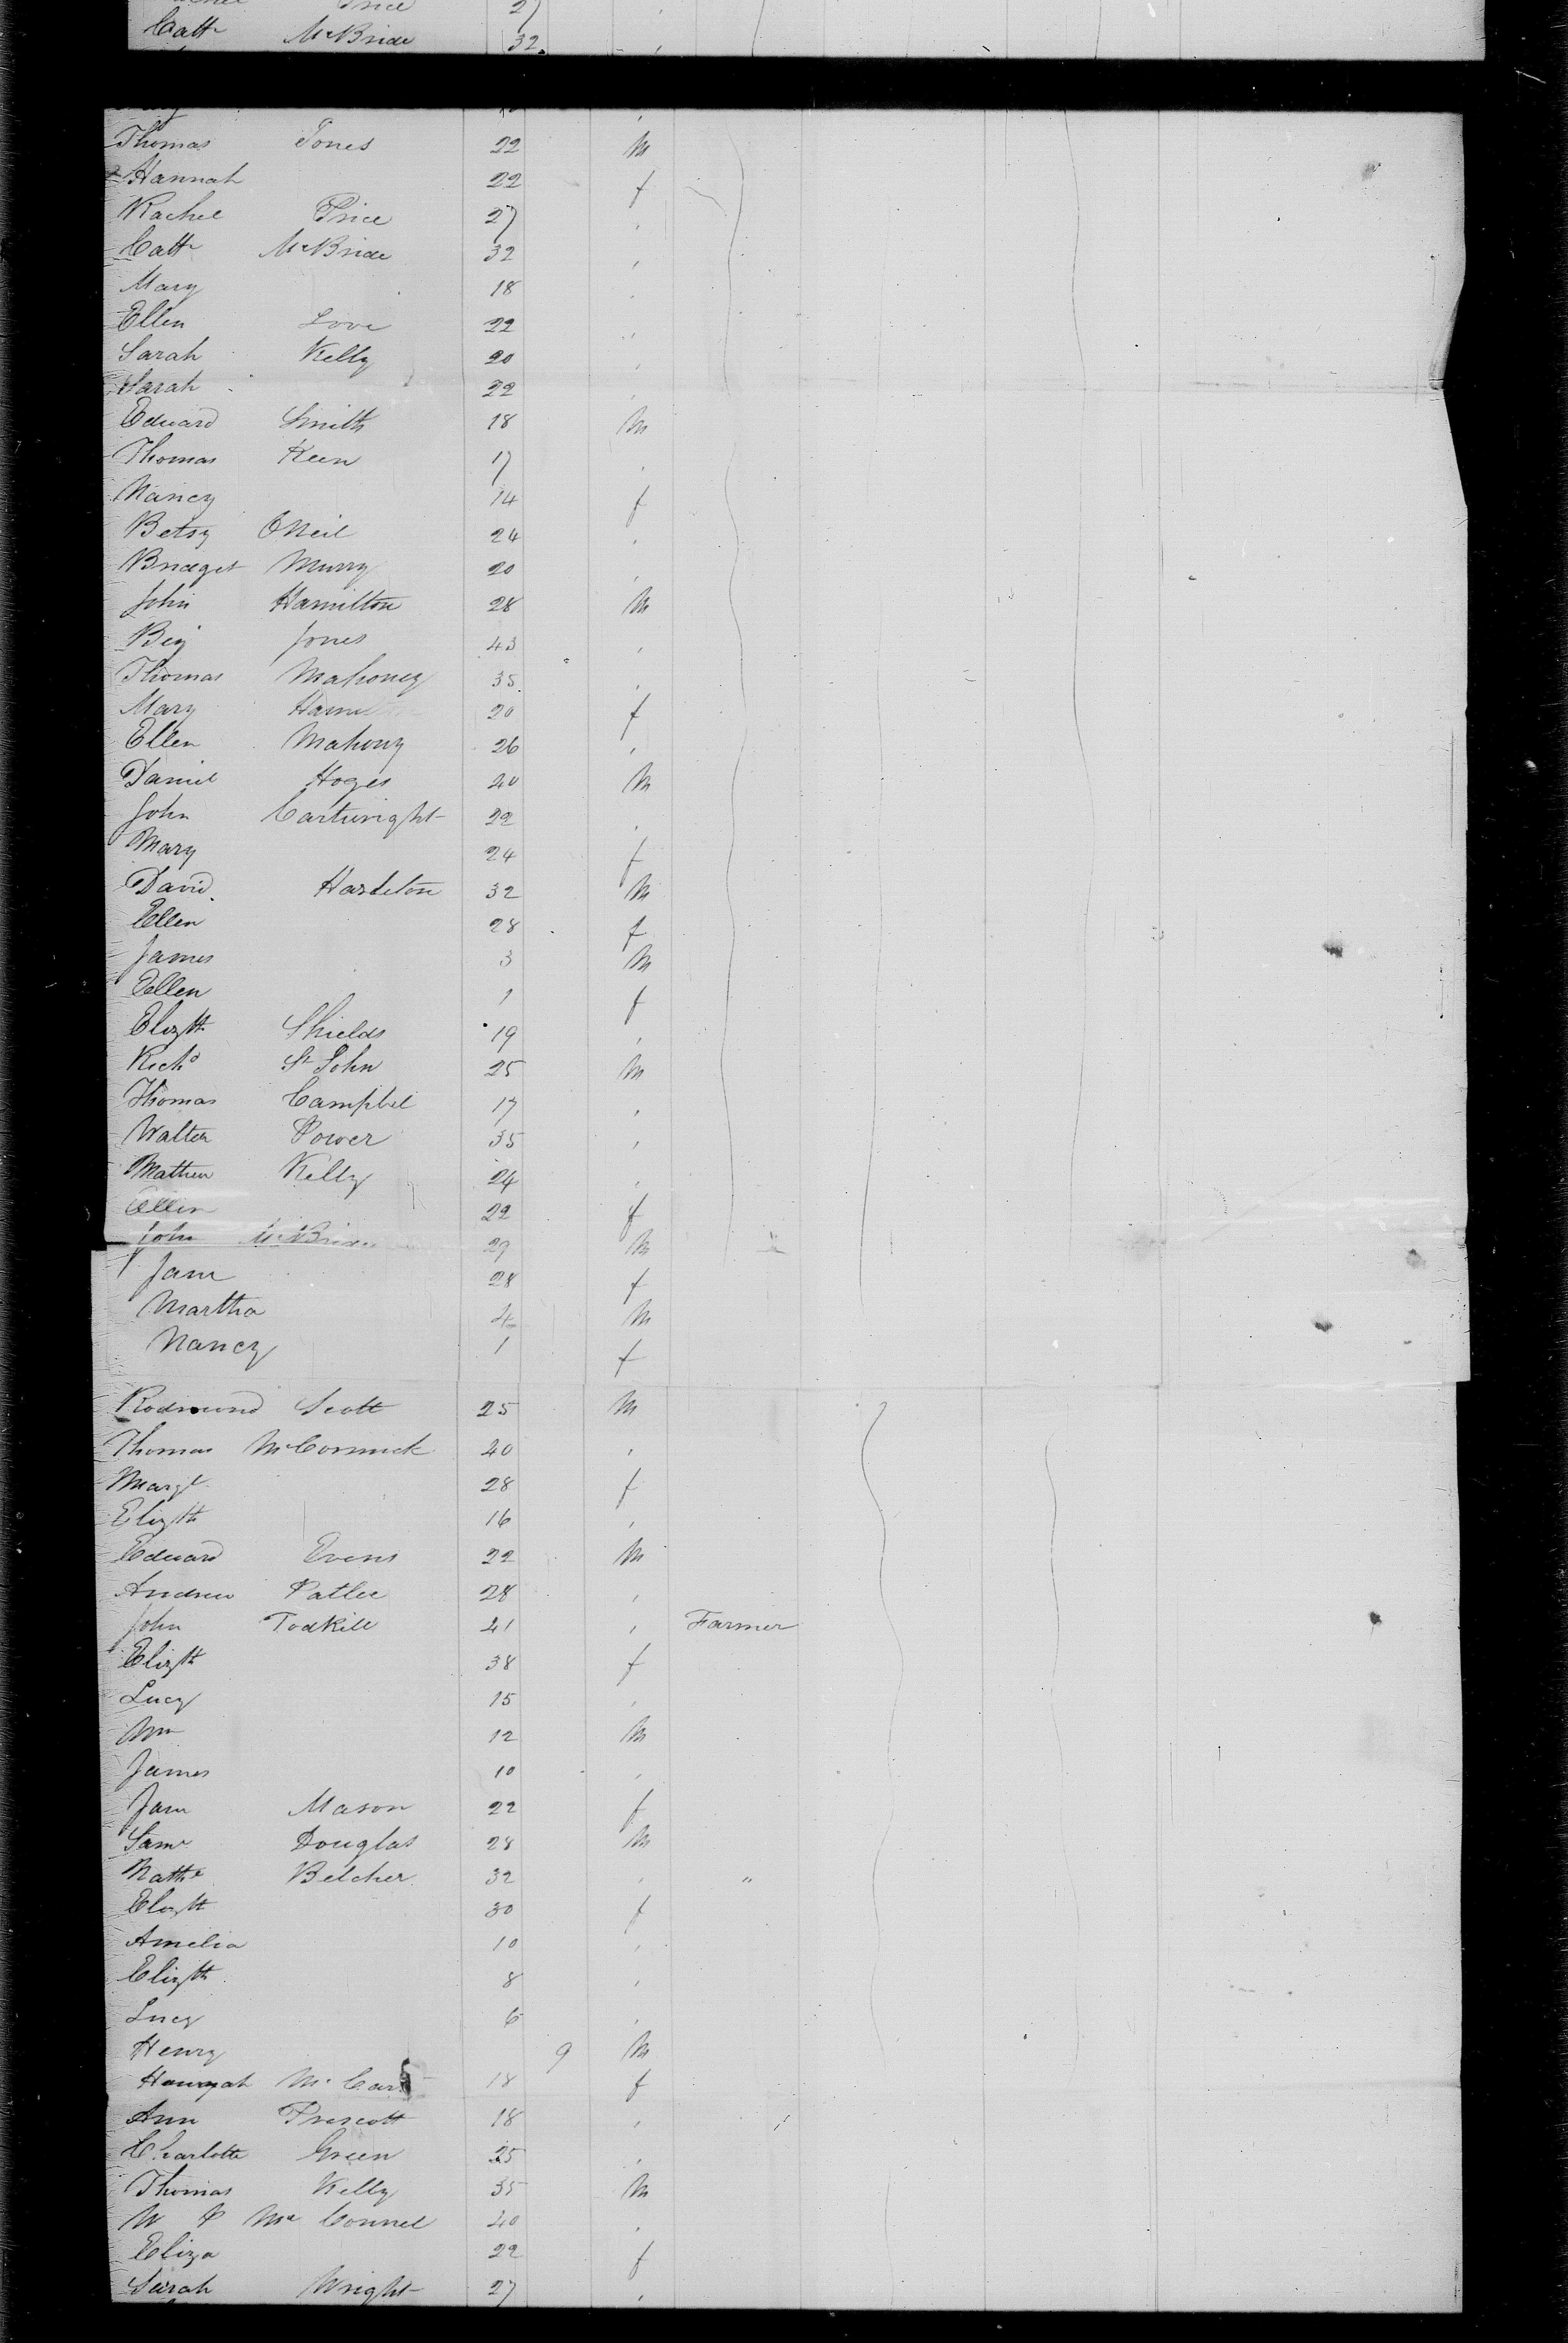 Price 27
Cathe McBride 32
Thomas Jones 22 M
Hannah 22 f
Rachel Price 27 "
Cathe McBride 32 "
Mary 18 "
Ellen Love 22 "
Sarah Kelly 20 "
Sarah 22 "
Edward Smith 18 M
Thomas Keen 17 "
Nancy 14 f
Betsy ONeil 24 "
Bridget Murry 20 "
John Hamilton 28 M
Benj Jones 43 "
Thomas Mahoney 35 "
Mary Hamilton 20 f
Ellen Mahony 26 "
Daniel Hoges 20 M
John Cartwright 22 "
Mary 24 f
David Hazleton 32 M
Ellen 28 f
James 3 M
Ellen 1 f
Elizth Shields 19 "
Richd St John 25 M
Thomas Campbel 17 "
Walter Power 35 "
Mathew Kelly 24 "
Ellen 22 f
John McBride 29 M
Jane 28 f
Martha 4 M
Nancy 1 f
Rodmond Scott 25 M
Thomas McCormick 40 "
Margt 28 f
Elizth 16 "
Edward Evens 22 M
Andrew 28 "
John Todkill 41 " Farmer
Elizth 38 f
Lucy 15 "
Wm 12 M
James 10 "
Jane Mason 22 f
Saml Douglas 28 M
Belcher 32 " "
Elizth 30 f
Amelia 10 "
Elizth 8 "
Lucy 6 "
Henry 9 M
Hannah 18 f
Ann Prescott 18 "
Charlotte Green 25 "
Thomas Kelly 35 M
W P McConnel 40 "
Eliza 22 f
Sarah Wright 27 "